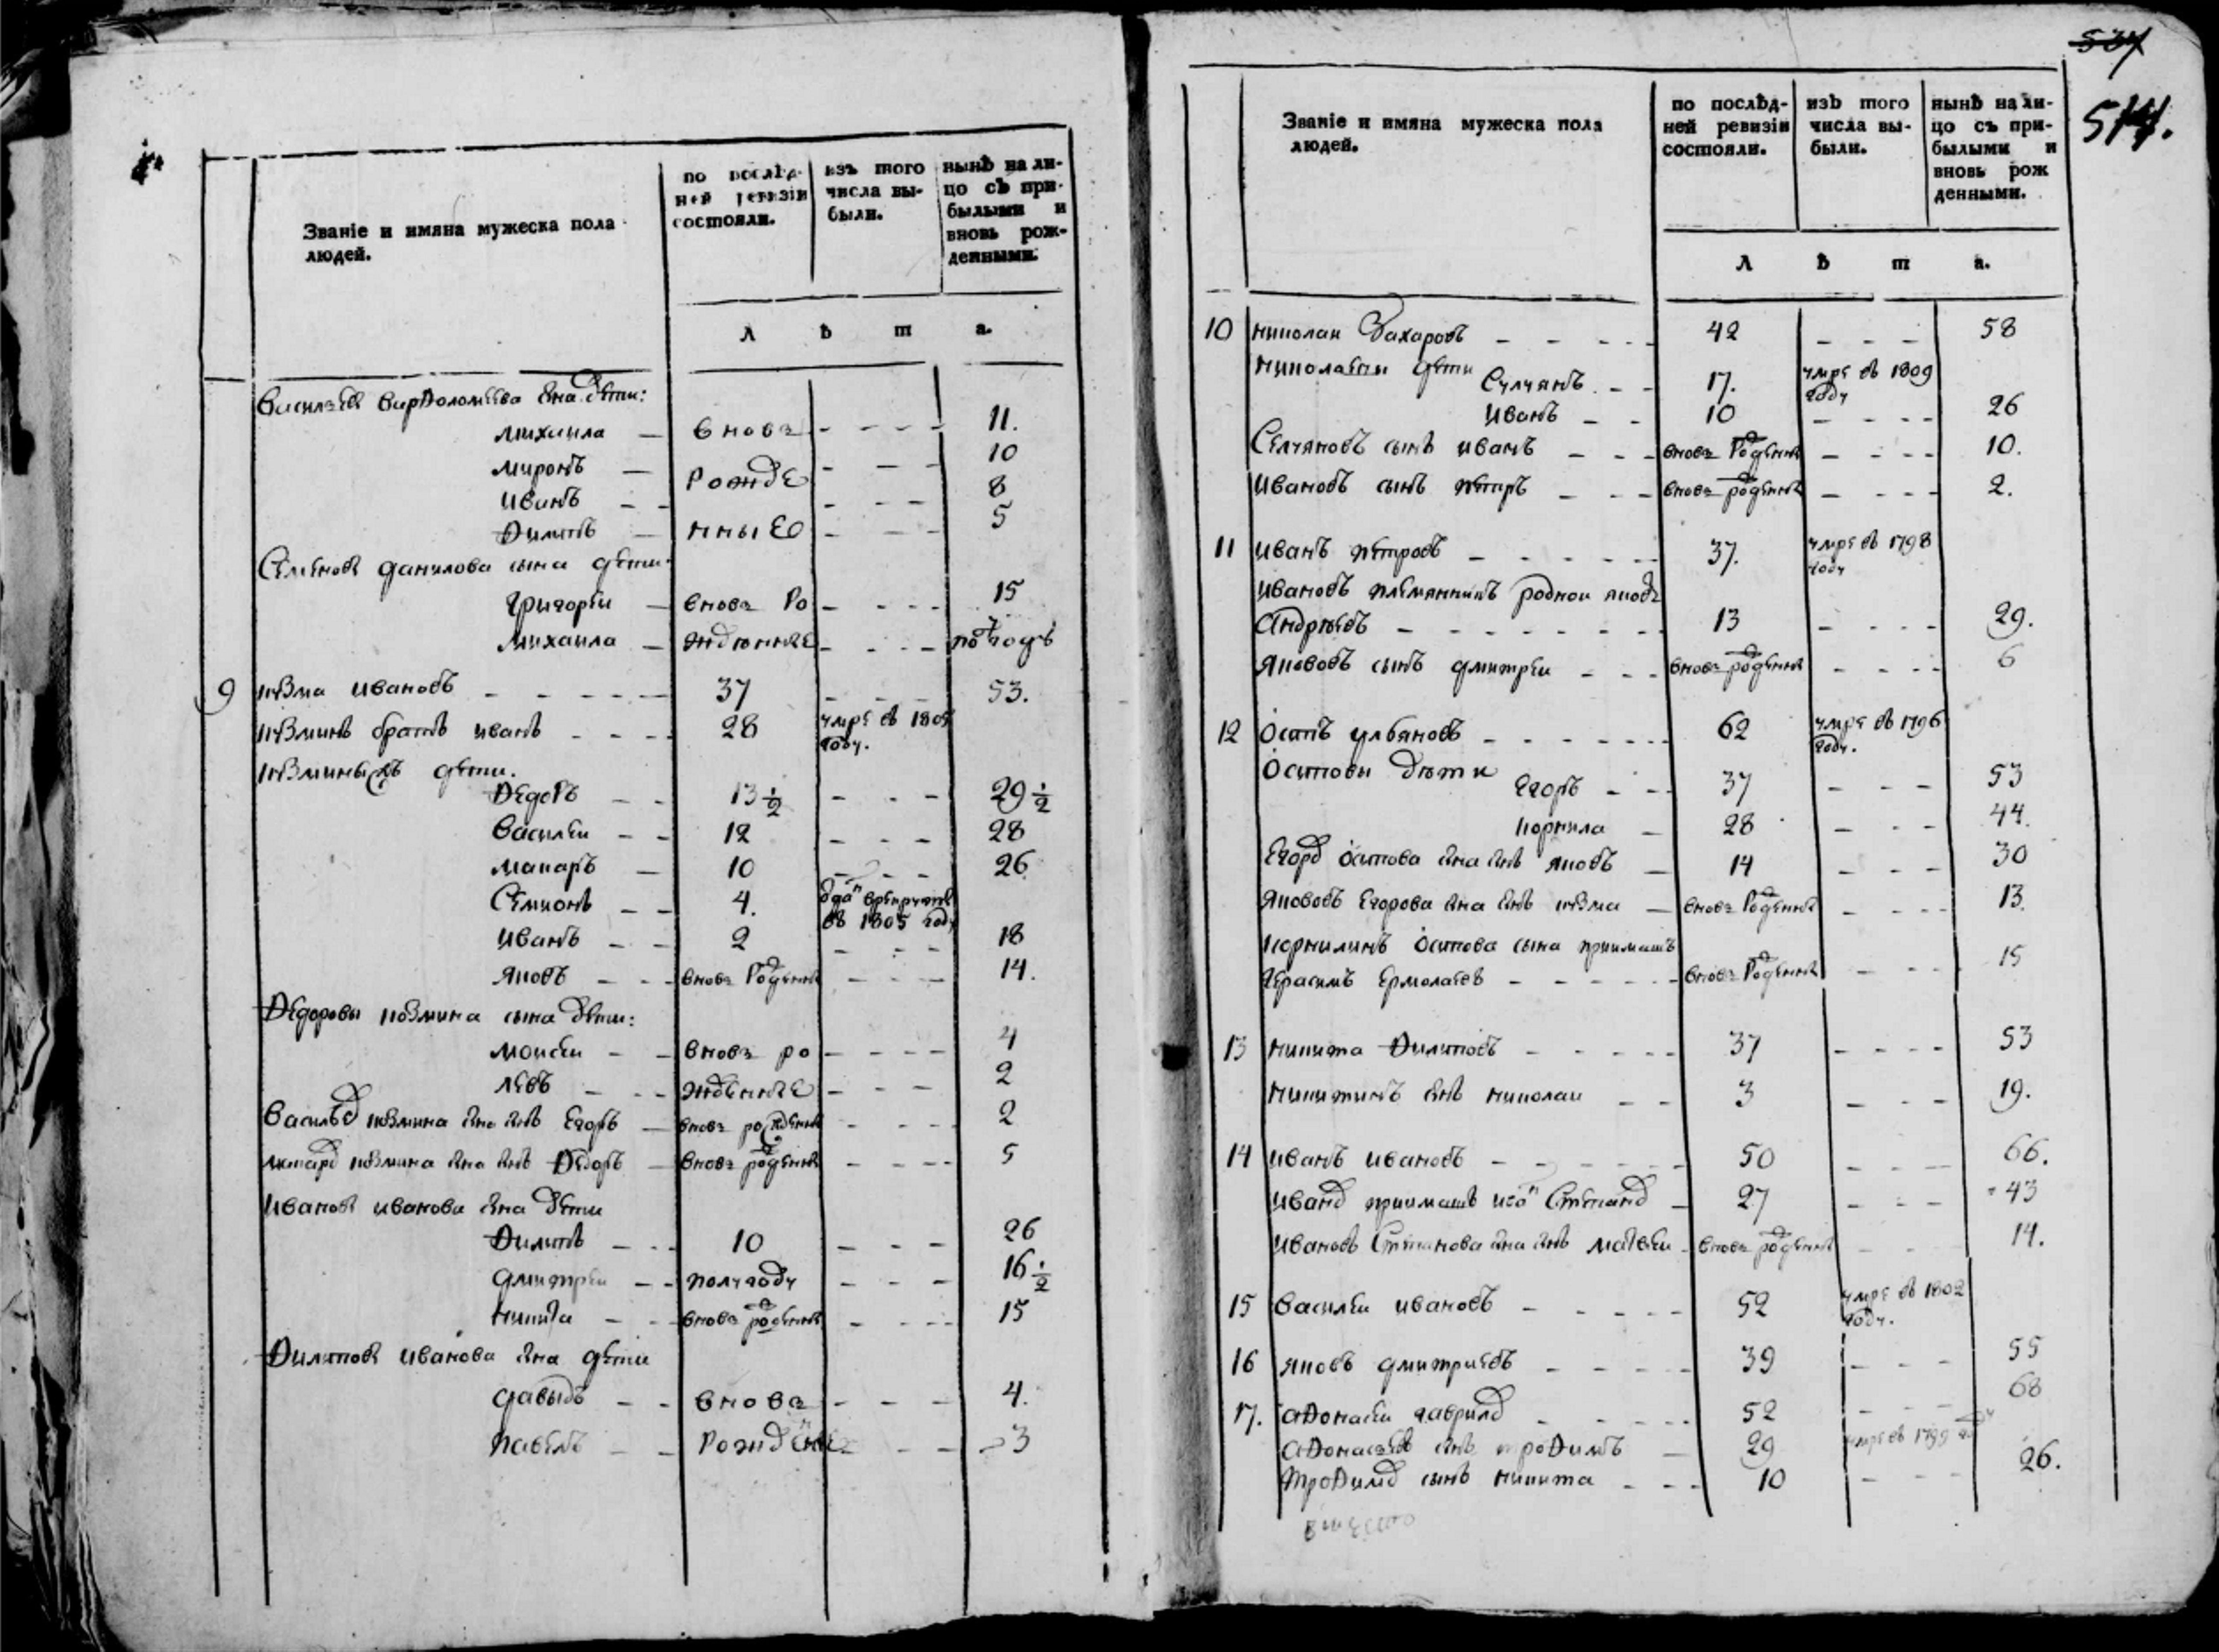 Званіе и имяна мужеска пола
людей.
по послѣд-
ней ревизіи
состояли.
изъ того
числа вы-
были.
нынѣ на ли-
цо съ при-
былыми и
вновь рож-
денными.
Л ѣ т а.
Васильевы варѳоломѣева сна дѣти:
михаила — вновь - - - - 11.
миронъ — - — - 10
иванъ - - рожде - - - - 8
Ѳилипъ — нные - - — - 5
Семеновы данилова сына дѣти:
григореи — вновь ро - - - - 15
михаила — жденные - - - - полгодъ
9 козма ивановъ - - - - - 37 - - - 53.
козминъ братъ иванъ - - - - 28 умре въ 1805
году.
козмины дѣти.
Ѳедоръ - - 13 1/2 - - - 29 1/2
василеи - - 12 - - - 28
макаръ — 10 - - - 26
Семионъ - - 4. отдан в рекруты
въ 1805 году
иванъ - - 2 - - - 18
яковъ - - - вновь рожденъ - - - 14.
Ѳедоровы козмина сына дѣти:
моисеи - - вновь ро - - - - 4
левъ - - - жденные - - - 2
василья козмина сна снъ Егоръ — вновь рожденъ - - - - 2
макара козмина сна снъ Ѳедоръ — вновь рожденъ - - - - 5
ивановы иванова сна дѣти
Ѳилипъ - - - 10 - - - 26
дмитреи - - полугоду - - - 16 1/2
никита - - - вновь рожденъ - - - - 15
Ѳилиповы иванова сна дѣти
давыдъ - - вновь - - - 4.
павелъ - - рожденные - - 3
537
514.
Званіе и имяна мужеска пола
людей.
по послѣд-
ней ревизіи
состояли.
изъ того
числа вы-
были.
нынѣ на ли-
цо съ при-
былыми и
вновь рож
денными.
Л ѣ т а.
10 николаи Захаровъ - - - - - 42 - - - 58
николаевы дѣти
Сулуянъ - - 17. умре въ 1809
году
иванъ - - 10 - - - - 26
Селуяновъ сынъ иванъ - - - вновь рожденъ - - - - 10.
ивановъ сынъ петръ - - - вновь рожденъ - - - - 2.
11 иванъ петровъ - - - - - 37. умре въ 1798
году
ивановъ племянникъ роднои яковъ
андреевъ - - - - - - - - 13 - - - - 29.
яковов сынъ дмитреи - - - вновь рожденъ - - - - 6
12 осипъ ульяновъ - - - - - - 62 умре въ 1796
году.
осиповы дѣти
Егоръ - - - 37 - - - 53
корнила — 28 - - - 44.
Егора осипова сна снъ яковъ — 14 - - - 30
яковов Егорова сна снъ козма — вновь рожденъ - - - - 13.
корнилинъ осипова сына приимашъ
герасимъ ермолаевъ - - - - - - вновь рожденъ - - - 15
13 никита Ѳилиповъ - - - - - 37 - - - - 53
никитинъ снъ николаи - - 3 - - - 19.
14 иванъ ивановъ - - - - - - 50 - - — 66.
ивана приимашъ Степанъ — 27 - - - 43
ивановъ Степанова сна снъ матвеи - вновь рожденъ - - 14.
15 василеи ивановъ - - - - - 52 умре въ 1802
году.
16 яковъ дмитриевъ - - - - 39 - - - 55
17. аѳонасеи гаврилъ - - - - - 52 - - - 68
аѳонасьевъ снъ троѳимъ — 29 умре въ 1799 году
троѳима сынъ никита - - - 10 - - - 26.